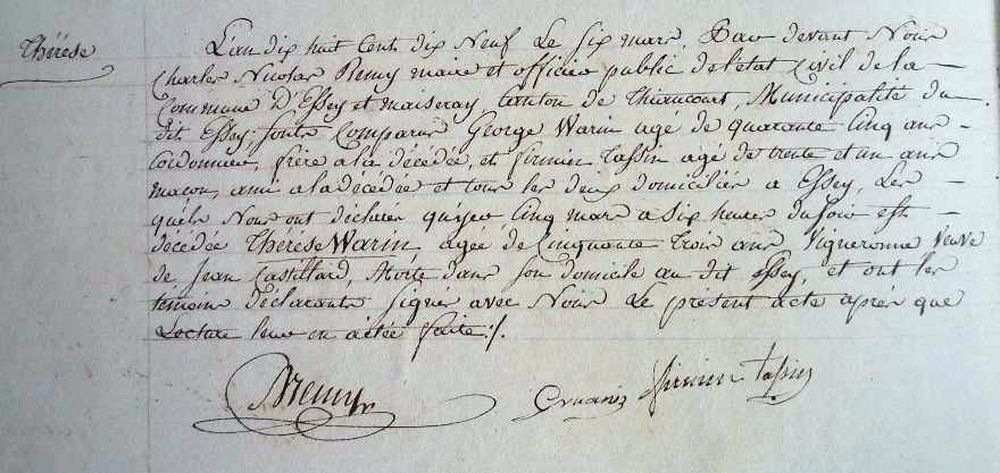 Thérèse
L'an dix huit Cent dix Neuf Le Six mars, Par devant Nous
Charles Nicolas Remy maire et officier public de l'état Civil de la
Commune D'Essey et maiseray Canton de Thiaucourt, Municipalité du
dit Essey, sonts Comparus George Warin agé de quarante Cinq ans
Cordonnier, frère a la décédée, et firmin Tassin agé de trente et un ans
maçon, ami a la décédée et tous les deux domiciliés a Essey, Les
quéls Nous ont déclarés qu'hier Cinq mars a Six heures du soir est
décédée Thérèse Warin agée de Cinquante trois ans, Vigneronne Veuve
de Jean Castillard, Morte dans Son domicile au dit Essey, et ont les
témoins déclarants Signer avec Nous Le présent acte après que
Lecture leur en a étée faite ./.
Remy
firmin tassin